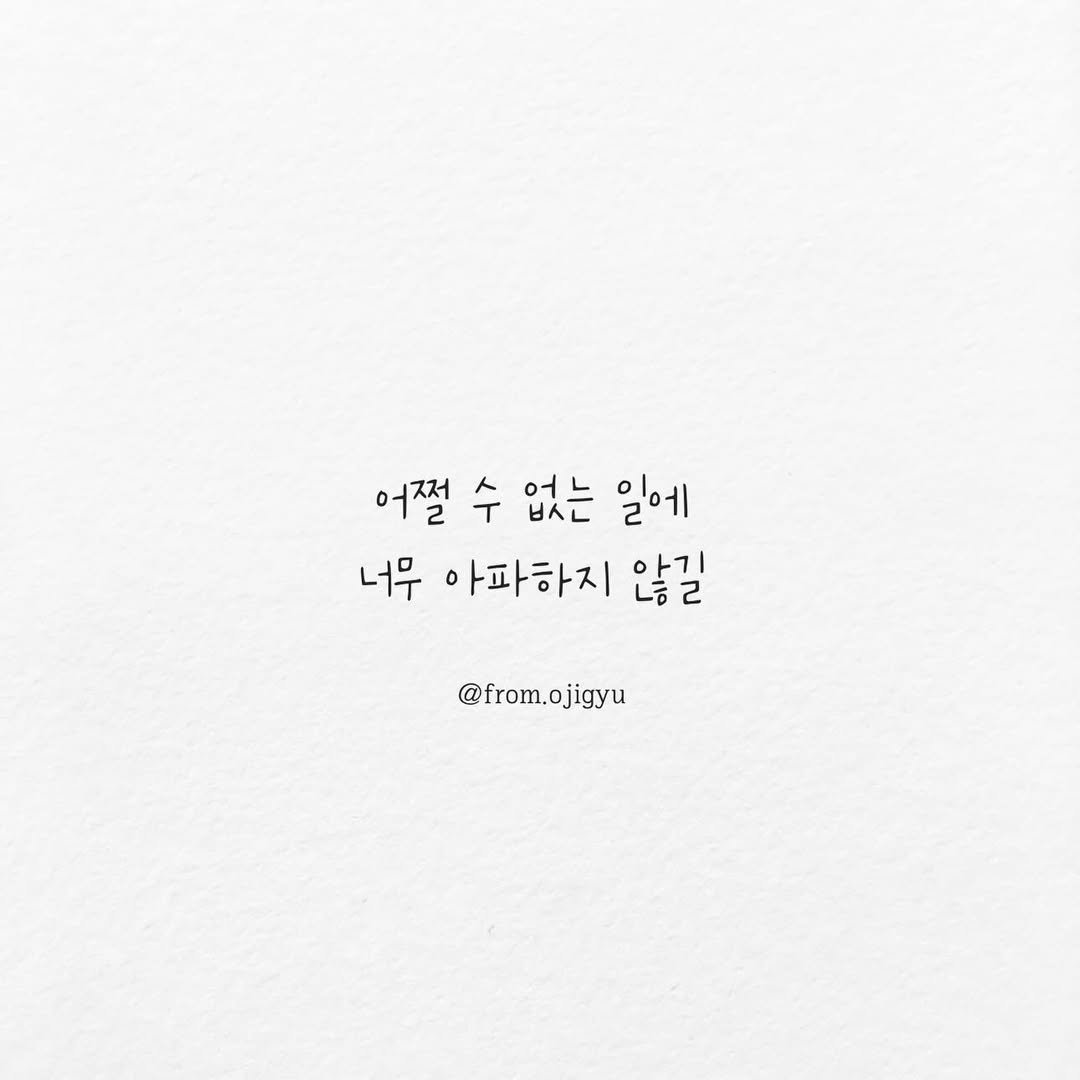 어쩔 수 없는 일에
너무 아파하지 않길
@from.ojigyu